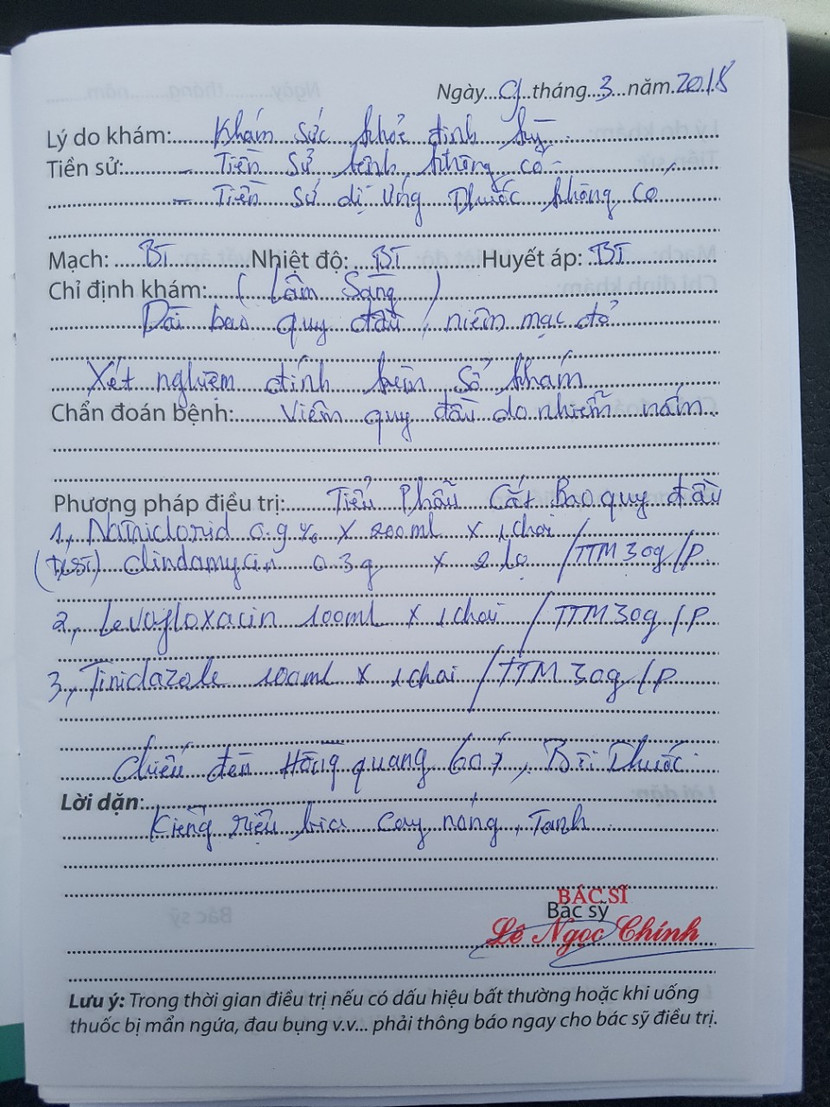 Ngày...9...tháng...3...năm.2018
Lý do khám: Khám sức khỏe định kỳ.
Tiền sử: - Tiền sử bệnh không có
- Tiền sử dị ứng Thuốc không có
Mạch: BT Nhiệt độ: BT Huyết áp: BT
Chỉ định khám: ( Lâm Sàng )
Dài bao quy đầu, niêm mạc đỏ
Xét nghiệm đính kèm sổ khám
Chẩn đoán bệnh: Viêm quy đầu do nhiễm nấm.
Phương pháp điều trị: Tiểu Phẫu Cắt Bao quy đầu
1, Natriclorid 0.9% x 200ml x 1chai
(test) Clindamycin 0.3g x 2 lọ /TTM 30g/P.
2, Levofloxacin 100ml x 1chai /TTM 30g/P
3, Tinidazole 100ml x 1chai /TTM 30g/P
Chiếu đèn Hồng quang 60', Bôi Thuốc.
Lời dặn:
Kiêng rượu bia cay nóng, Tanh
BÁC SĨ
Bác sỹ
Lê Ngọc Chính
Lưu ý: Trong thời gian điều trị nếu có dấu hiệu bất thường hoặc khi uống
thuốc bị mẩn ngứa, đau bụng v.v... phải thông báo ngay cho bác sỹ điều trị.